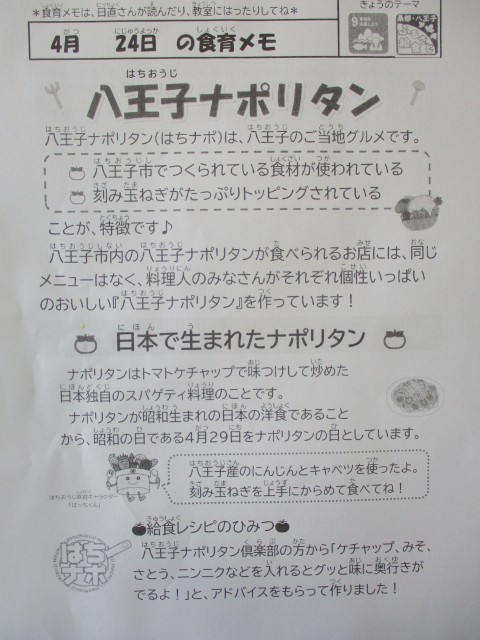 ＊食育メモは、日直さんが読んだり、教室にはったりしてね＊
きょうのテーマ
4月　24日　の食育メモ
八王子ナポリタン
八王子ナポリタン(はちナポ)は、八王子のご当地グルメです。
八王子市でつくられている食材が使われている
刻み玉ねぎがたっぷりトッピングされている
ことが、特徴です♪
八王子市内の八王子ナポリタンが食べられるお店には、同じ
メニューはなく、料理人のみなさんがそれぞれ個性いっぱい
のおいしい『八王子ナポリタン』を作っています！
日本で生まれたナポリタン
ナポリタンはトマトケチャップで味つけして炒めた
日本独自のスパゲティ料理のことです。
ナポリタンが昭和生まれの日本の洋食であること
から、昭和の日である4月29日をナポリタンの日としています。
八王子産のにんじんとキャベツを使ったよ。
刻み玉ねぎを上手にからめて食べてね！
はちおうじ食育キャラクター
「はっちくん」
●給食レシピのひみつ●
はち
ナポ
八王子ナポリタン倶楽部の方から「ケチャップ、みそ、
さとう、ニンニクなどを入れるとグッと味に奥行きが
でるよ！」と、アドバイスをもらって作りました！